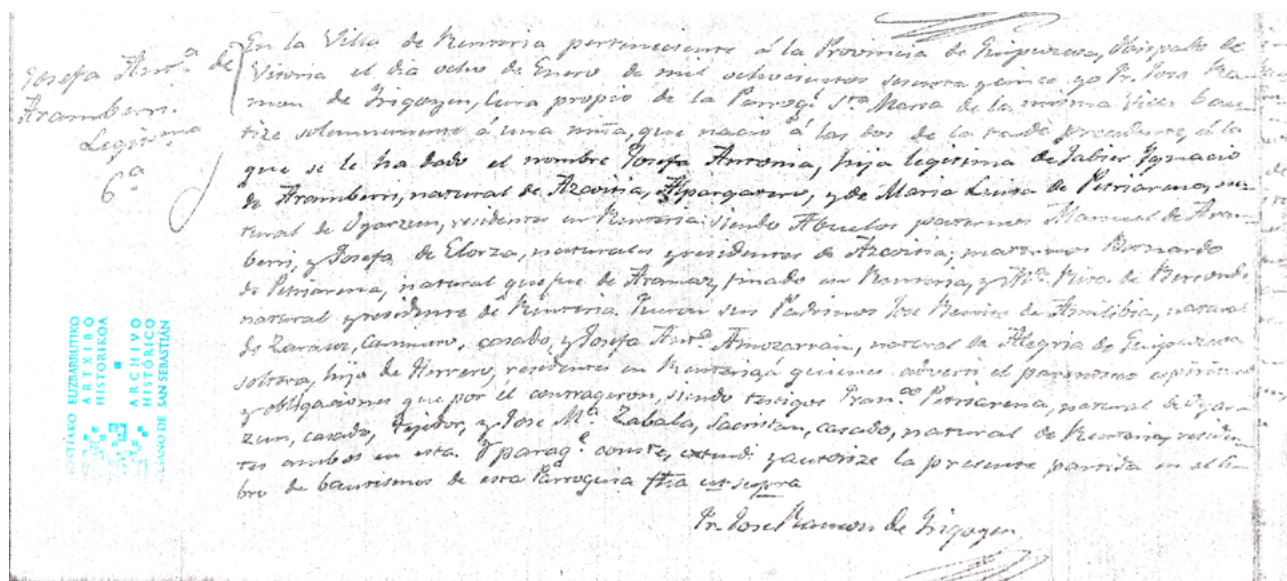 Josefa Ant.ª de
Aramberri.
Legit.ma
6ª
En la Villa de Renteria perteneciente á la Provincia de Guipuzcoa, Obispado de
Vitoria el dia ocho de Enero de mil ochocientos sesenta y cinco yo Fr. Jose Ra-
mon de Irigoyen, Cura propio de la Parroq.l Sta Maria de la misma Villa bau-
tize solemnemente á una niña, que nació á las dos de la tarde precedente, á la
que se le ha dado el nombre Josefa Antonia, hija legitima de Jabier Ignacio
de Aramberri, natural de Azcoitia, Alpargatero, y de Maria Luisa de Petriarena, na-
tural de Oyarzun, residentes en Renteria: siendo Abuelos paternos Manuel de Aram-
berri, y Josefa de Elorza, naturales y residentes de Azcoitia; maternos Bernardo
de Petriarena, natural que fue de Aranaz, finado en Renteria, y M.ª Rita de Berrondo
natural y residente de Renteria. Fueron sus Padrinos Jose Benito de Amilibia, natural
de Zarauz, Caminero, casado, y Josefa Ant.ª Amozarrain, natural de Alegria de Guipuzcoa
soltera, hija de Herrero, residentes en Renteria, á quienes adverti el parentesco espiritual
y obligaciones que por él contrageron, siendo testigos Fran.co Petriarena, natural de Oyar-
zun, casado, Tejedor, y Jose M.ª Zabala, Sacristan, casado, natural de Renteria, residen-
tes ambos en esta. Y para q.e conste, extendi y autorize la presente partida en el li-
bro de bautismos de esta Parroquia fha ut supra
Fr. Jose Ramon de Irigoyen
ELIZBARRUTIKO
ARTXIBO
HISTORIKOA
ARCHIVO
HISTÓRICO
DE SAN SEBASTIÁN